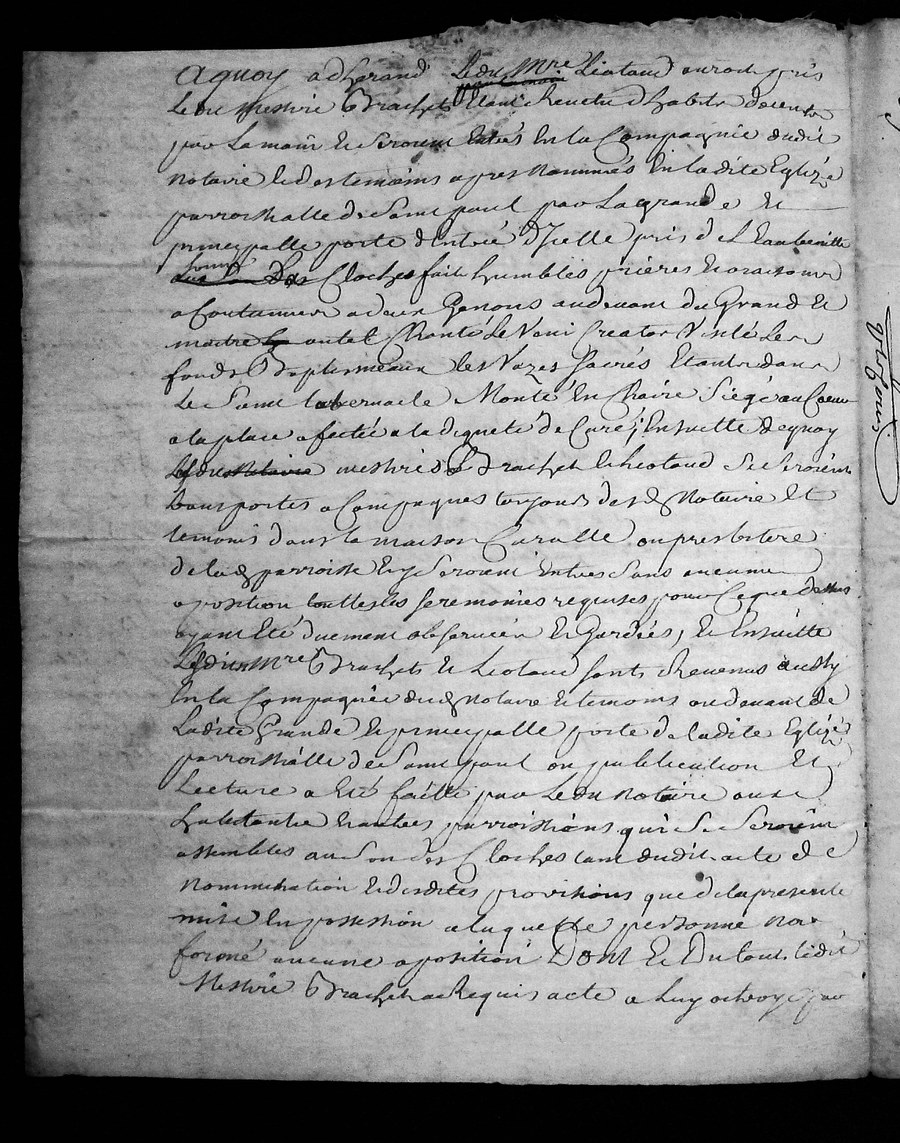 Aquoy adherand Ledit Mre Liotaud auroit pris
Ledit Messire Brachet Etant Revetu d habits decents
par La main Et seroient Entrés En la Compagnie dudit
Notaire Et des temoins apres Nommés En ladite Eglize
parroissialle de Saint paul par La grande Et
principalle porte d Entrée d Icelle pris de L Eau benitte
sonné Les Cloches fait humbles prières Et oraisons
a Coutumées a deux Genous au devant du Grand Et
maitre autel Chanté Le Veni Creator Visité Les
fonds Baptismeaux les Vazes Sacrés Etants dans
Le Saint tabernacle Monté En Chaire Siégé au Coeur
a la place afectée a la dignité de Curé; Ensuitte dequoy
messire Brachet Et Liotaud Se Seroient
transportes a Compagnés toujours dud Notaire Et
temoins dans la maison Curialle ou presbitere
de lad parroisse Et y Seroient Entres Sans aucune
oposition touttes les Seremonies requises pour Ce que dessus
ayant Eté duement observées Et Gardées, Et Ensuitte
Lesdits Mres Brachet Et Liotaud sont Revenus aussy
En la Compagnie dud Notaire Et temoins au devant de
Ladite Grande Et principalle porte de ladite Eglize
parroissialle de Saint paul ou publication Et
Lecture a Eté faitte par Ledit Notaire aux
habitants Et autres parroissiens qui Se Seroient
assembles au Son des Cloches tant dudit acte de
Nommination Et desdites provisions que de la presente
mise En possession a laquelle personne Na
formé aucune oposition Dont Et Du tout ledit
Messire Brachet a Requis acte a Luy octroyé par